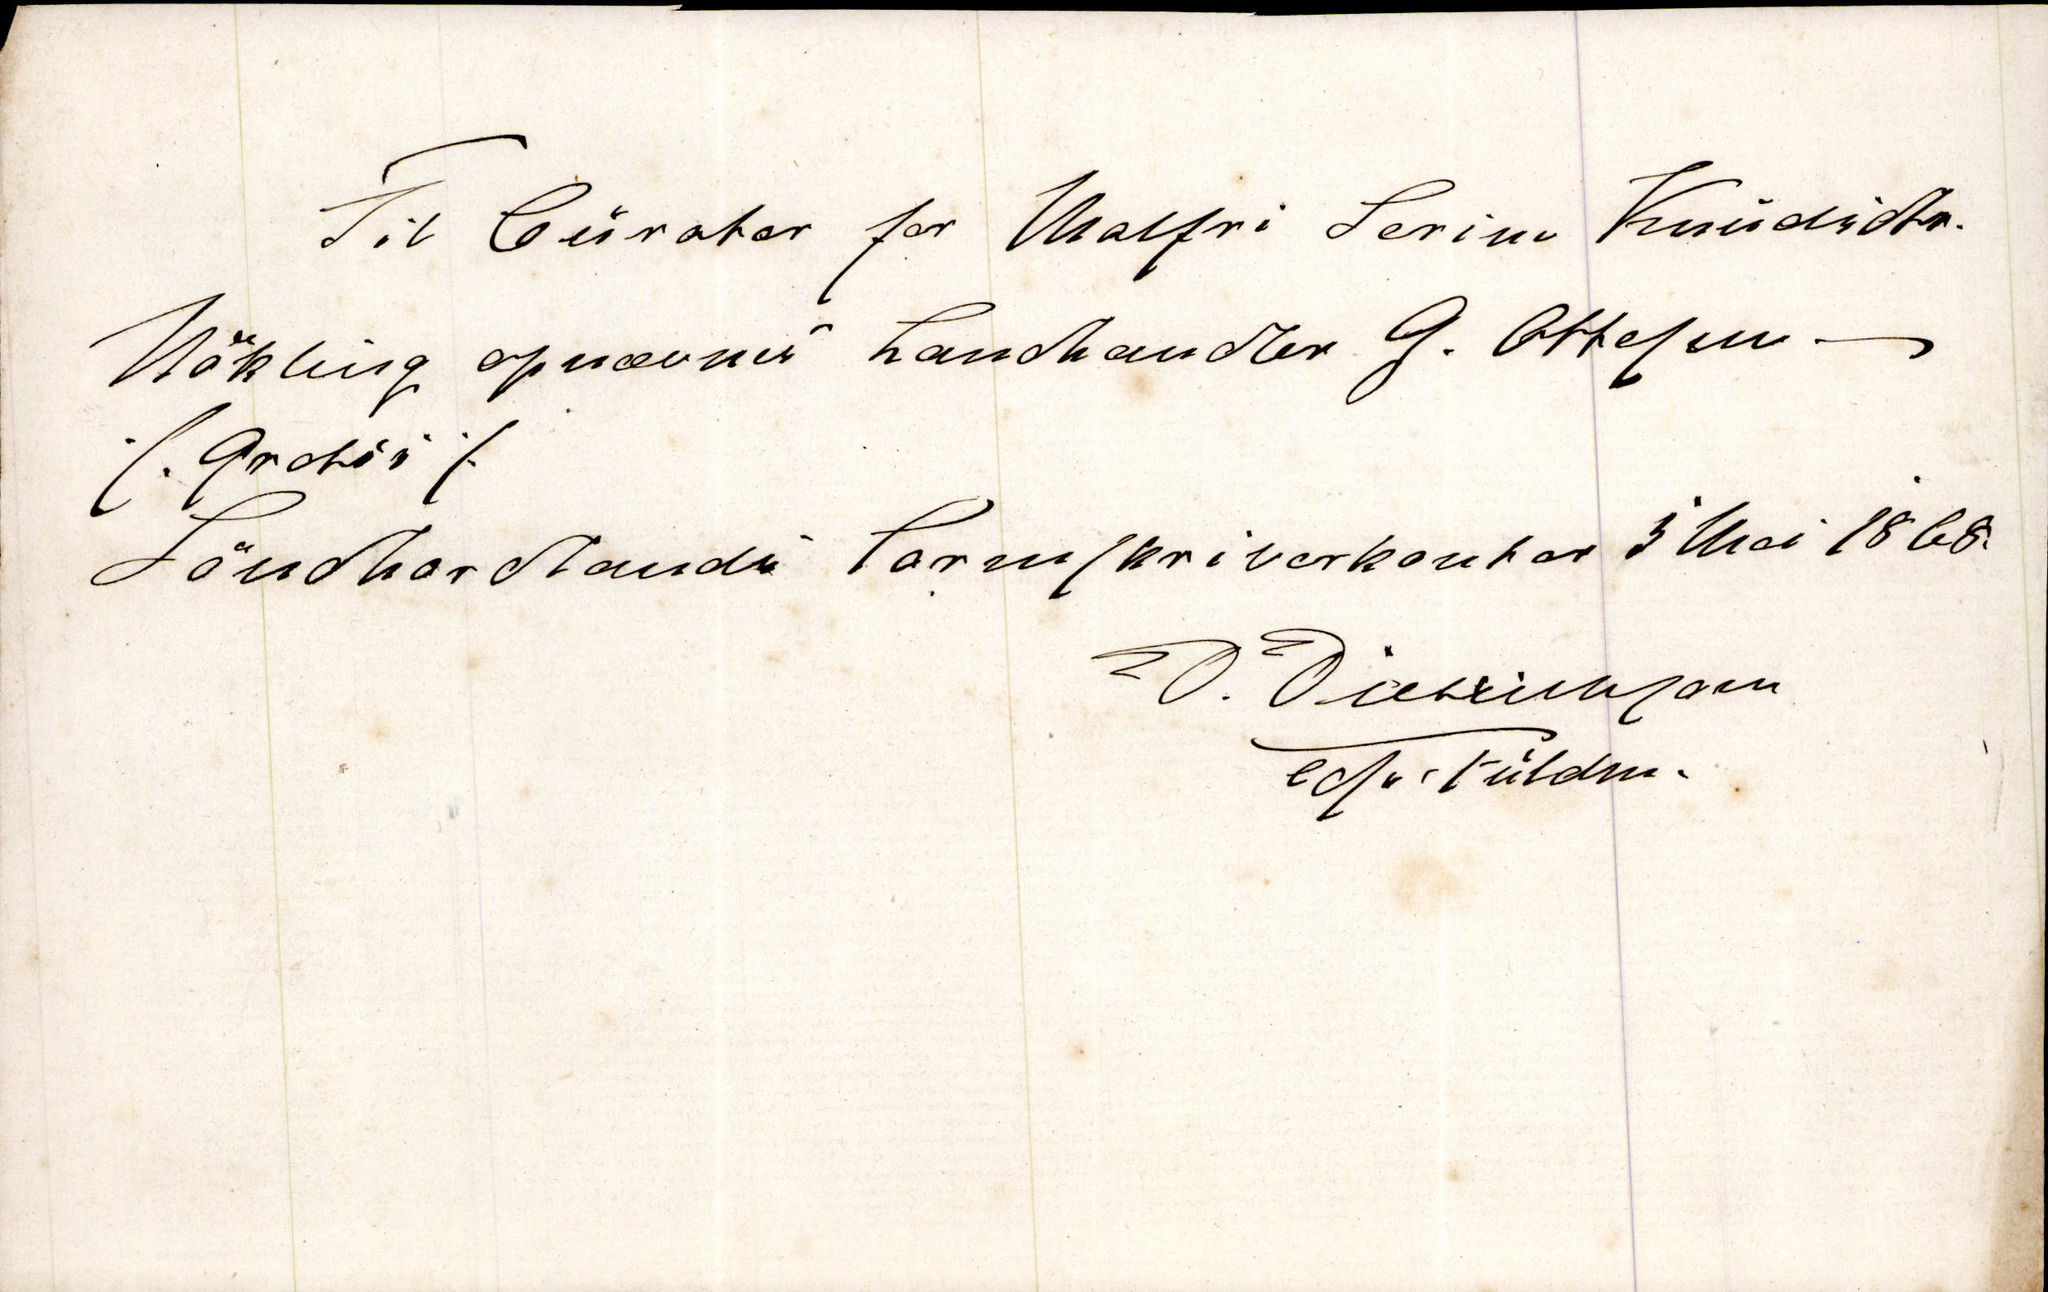 Til Curator for Malfri Serine Knudsdtr.
Nökling opnævnes Landhandler G. Ottesen
/: Gratis :/
Söndhordlands Sorenskriverkontor 5 Mai 1868.
D. Dietrichson
Fuldm.